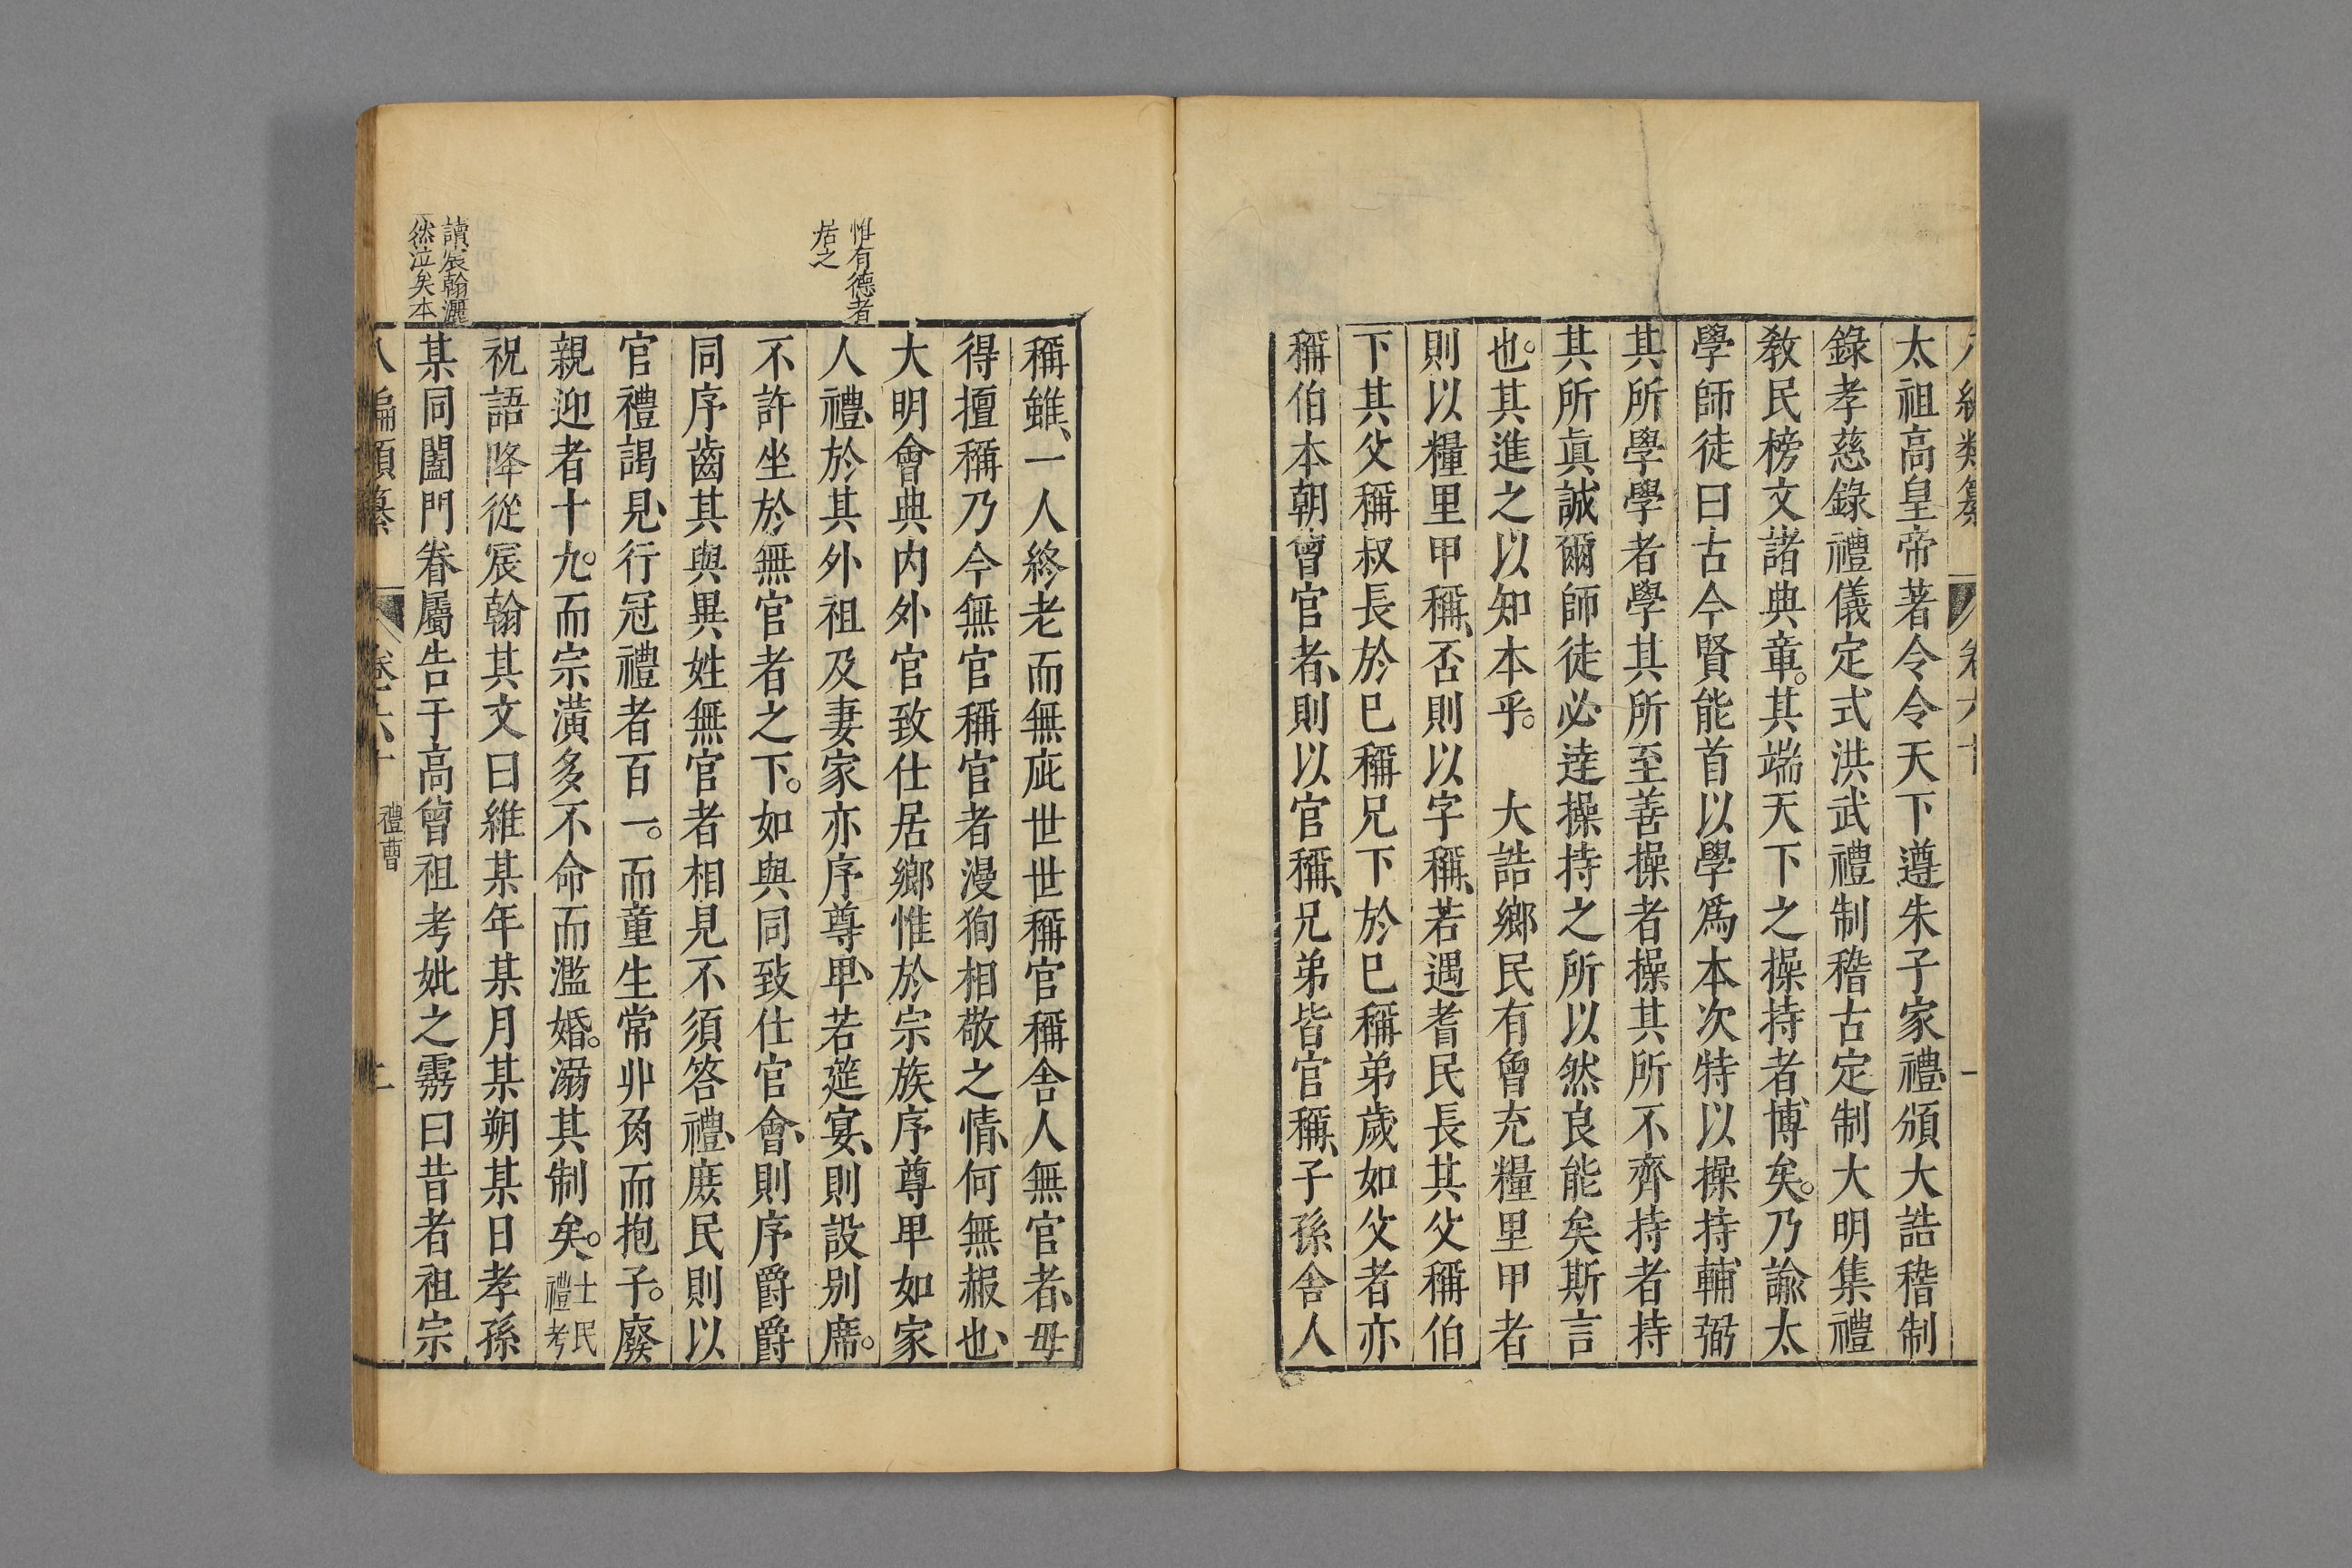 太祖高皇帝著令令天下遵朱子家禮、頒大誥稽制
錄孝慈錄禮儀定式洪武禮制稽古定制大明集禮
敎民榜文諸典章。其端天下之操持者、博矣。乃諭太
學師徒曰古今賢能首以學爲本次特以操持輔弼
其所學學者學其所至善操者操其所不齊持者持
其所眞誠爾師徒必逹操持之所以然良能矣斯言
也。其進之以知本乎。 大誥鄉民有曾充糧里甲者
則以糧里甲稱、否則以字稱、若遇耆民長其父稱伯
下其父稱叔長於巳稱兄下於巳稱弟歲如父者亦
稱伯本朝曾官者、則以官稱、兄弟皆官稱、子孫舍人
稱雖、一人終老而無庇世世稱官稱舍人無官者、毋
得擅稱乃今無官稱官者漫狥相敬之情、何無赧也、
大明會典内外官致仕居鄉惟於宗族序尊甲如家
人禮、於其外祖及妻家亦序尊甲、若筵宴、則設别席。
不許坐於無官者之下。如與同致仕官會、則序爵爵
同序齒其與異姓無官者相見不須答禮、庶民則以
官禮謁見、行冠禮者百一。而童生常丱角而抱子。廢
親迎者十九。而宗潢多不命而濫婚。溺其制矣。士民禮考
祝語降從宸翰其文曰維某年某月某朔某日孝孫
某同闔門眷屬告于高曾祖考妣之霛曰昔者祖宗
八編類纂 卷六十 禮曹 二
惟有德者
居之
讀宸翰灑
然泣矣本